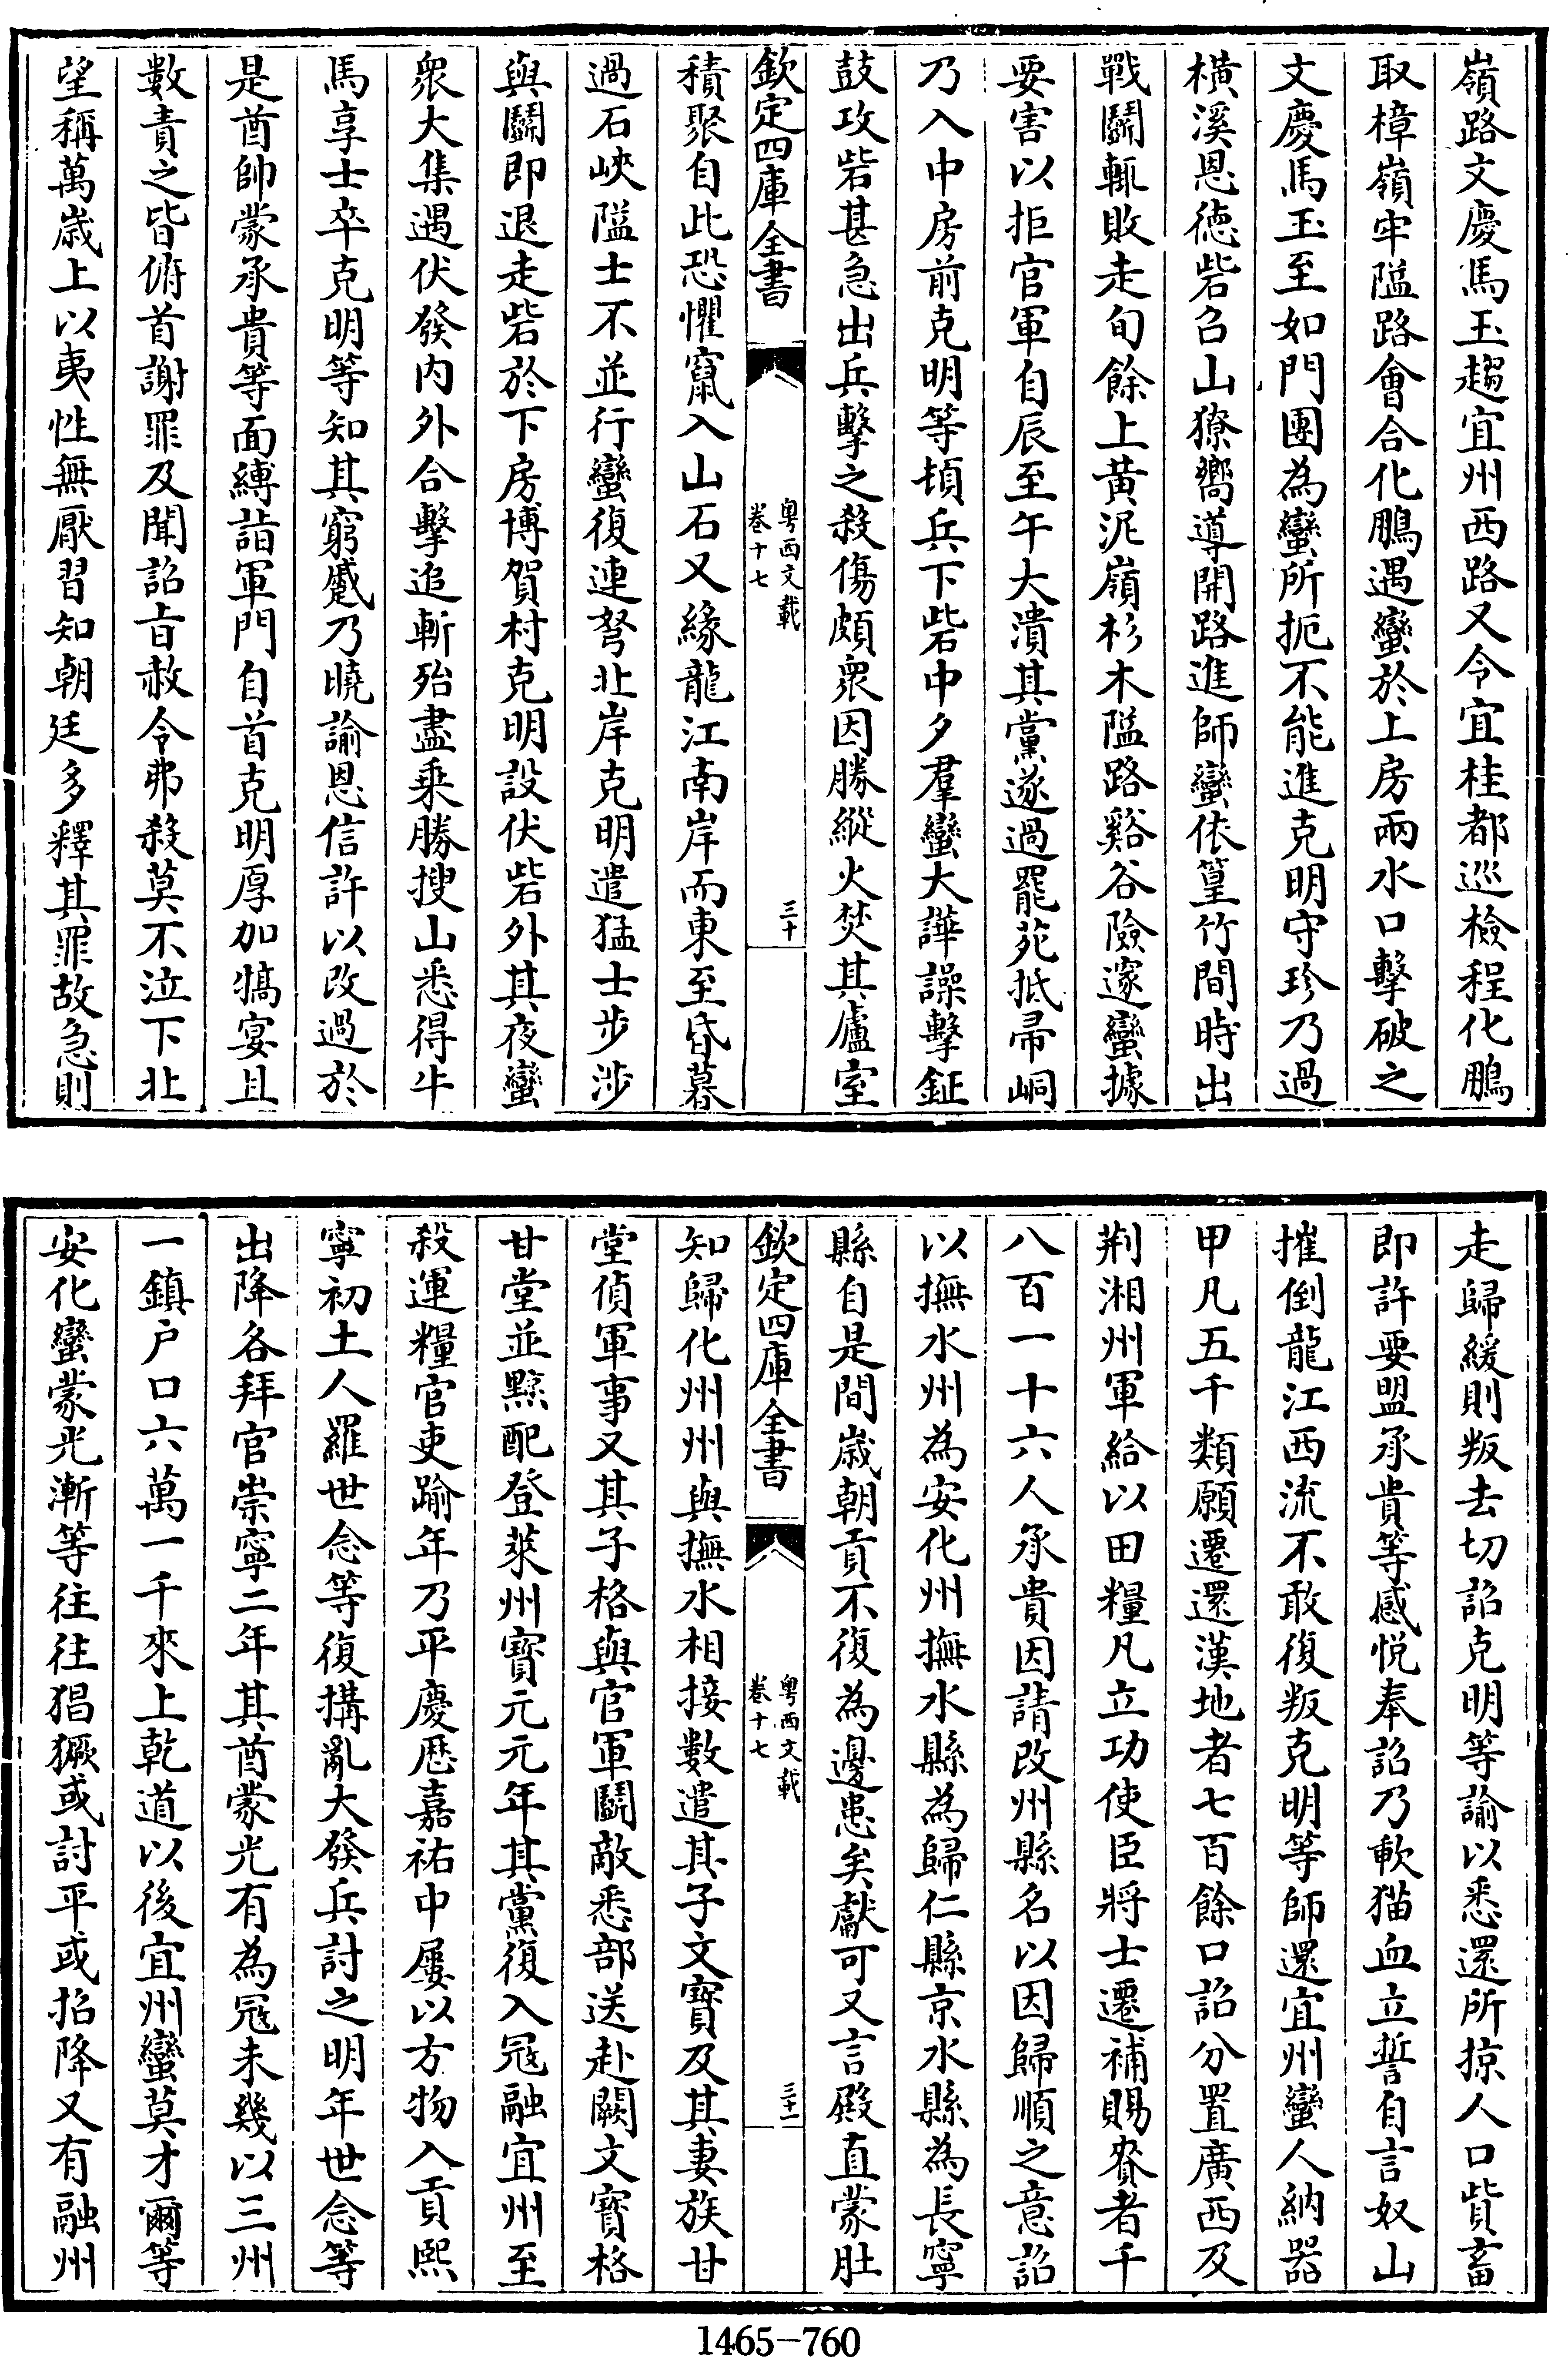 嶺路文慶馬玉趨宜州西路又令宜桂都巡檢程化鵬
取樟嶺牢隘路會合化鵬遇蠻於上房兩水口擊破之
文慶馬玉至如門團為蠻所扼不能進克明守珍乃過
橫溪恩德砦召山獠嚮導開路進師蠻依篁竹間時出
戰鬭輒敗走旬餘上黃泥嶺杉木隘路谿谷險邃蠻據
要害以拒官軍自辰至午大潰其黨遂過罷苑抵帚峒
乃入中房前克明等頓兵下砦中夕羣蠻大譁譟擊鉦
鼓攻砦甚急出兵擊之殺傷頗衆因勝縱火焚其廬室
欽定四庫全書
粤西文載
卷十七
三十
積聚自此恐懼竄入山石又緣龍江南岸而東至昏暮
過石峽隘士不並行蠻復連弩北岸克明遣猛士步涉
與鬭即退走砦於下房博賀村克明設伏砦外其夜蠻
衆大集遇伏發内外合擊追斬殆盡乘勝搜山悉得牛
馬享士卒克明等知其窮蹙乃曉諭恩信許以改過於
是酋帥蒙承貴等面縛詣軍門自首克明厚加犒宴且
數責之皆俯首謝罪及聞詔㫖赦令弗殺莫不泣下北
望稱萬歲上以夷性無厭習知朝廷多釋其罪故急則
走歸緩則叛去切詔克明等諭以悉還所掠人口貲畜
即許要盟承貴等感悦奉詔乃軟猫血立誓自言奴山
摧倒龍江西流不敢復叛克明等師還宜州蠻人納器
甲凡五千類願遷還漢地者七百餘口詔分置廣西及
荆湘州軍給以田糧凡立功使臣將士遷補賜賚者千
八百一十六人承貴因請改州縣名以因歸順之意詔
以撫水州為安化州撫水縣為歸仁縣京水縣為長寧
縣自是間歲朝貢不復為邊患矣獻可又言殿直蒙肚
欽定四庫全書
粤西文載
卷十七
三十一
知歸化州州與撫水相接數遣其子文寶及其妻族甘
堂偵軍事又其子格與官軍鬭敵悉部送赴闕文寶格
甘堂並黥配登萊州寶元元年其黨復入冦融宜州至
殺運糧官吏踰年乃平慶厯嘉祐中屢以方物入貢熙
寧初土人羅世念等復搆亂大發兵討之明年世念等
出降各拜官崇寧二年其酋蒙光有為冦未幾以三州
一鎮户口六萬一千來上乾道以後宜州蠻莫才爾等
安化蠻蒙光漸等往往猖獗或討平或招降又有融州
1465-760